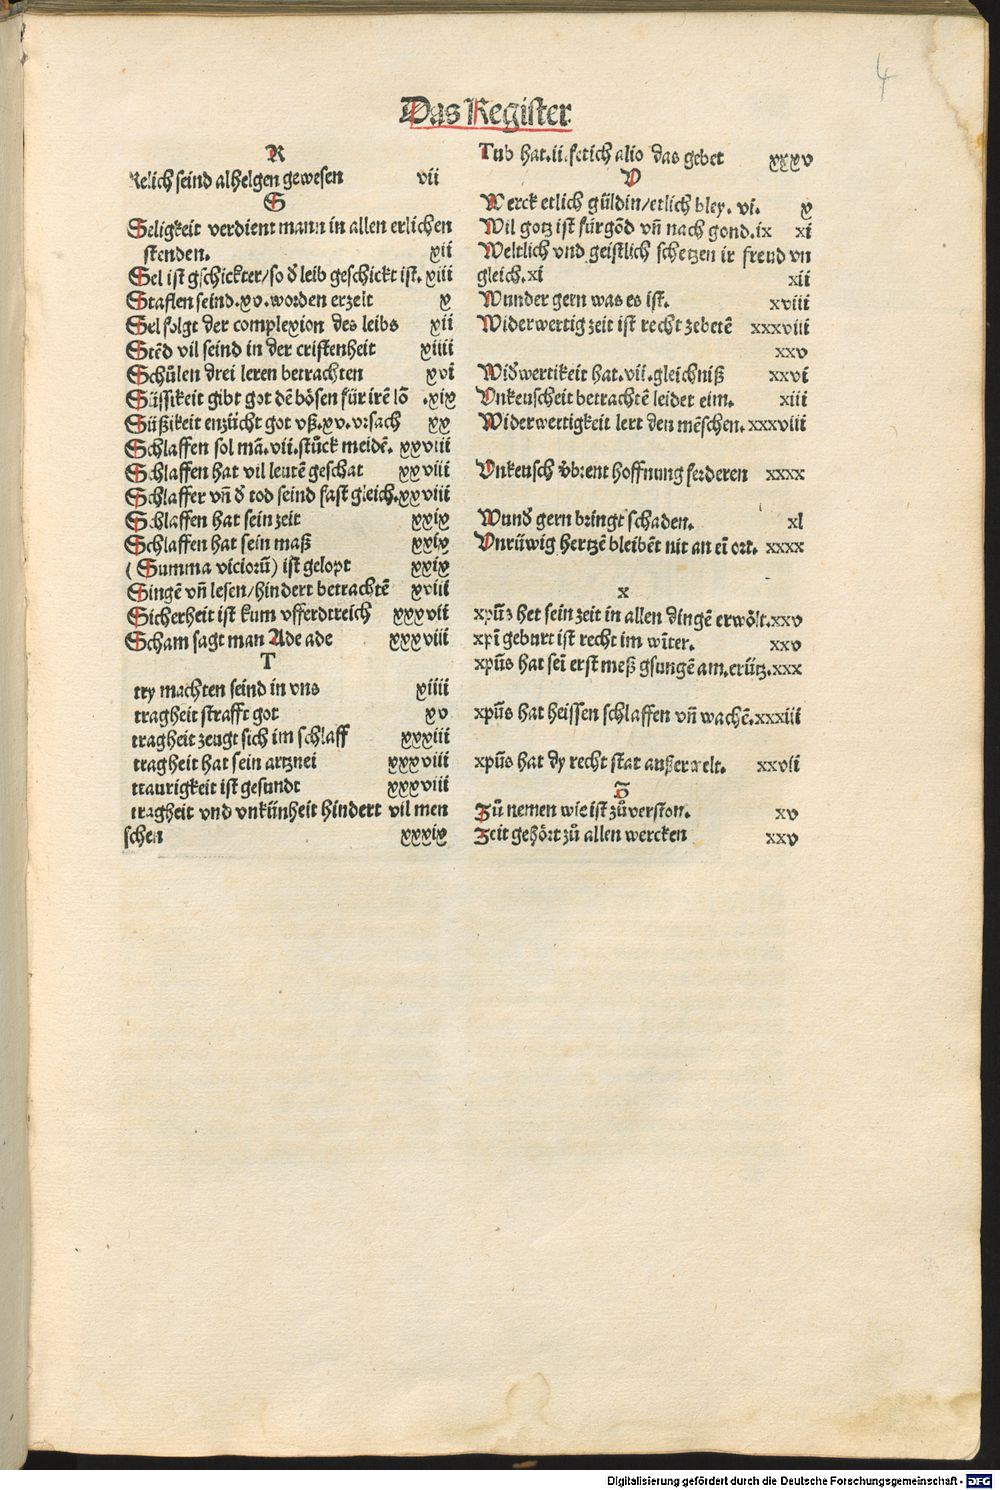 4
Das Register.
R
Relich seind al helgen gewesen vii
S
Seligkeit verdient mann in allen erlichen
stenden. xii
Sel ist gschickter/so d̕ leib geschickt ist. xiii
Staflen seind.xv.worden erzelt x
Sel folgt der complexion des leibs xii
Stēd vil seind in der cristenheit xiiii
Schůlen drei leren betrachten xvi
Süssikeit gibt got dē bösen für irē lō .xix
Süßikeit enzücht got vß.xv.vrsach xx
Schlaffen sol mā.vii.stůck meidē. xxviii
Schlaffen hat vil leutē geschat xxviii
Schlaffer vn̄ d̕ tod seind fast gleich.xxviii
Schlaffen hat sein zeit xxix
Schlaffen hat sein maß xxix
(Summa viciorū) ist gelopt xxix
Singē vn̄ lesen/hindert betrachtē xviii
Sicherheit ist kum vff erdtreich xxxvii
Scham sagt man Ade ade xxxviii
T
try machten seind in vns xiiii
tragheit strafft got xv
tragheit zeugt sich im schlaff xxxiii
tragheit hat sein artznei xxxviii
traurigkeit ist gesundt xxxviii
tragheit vnd vnkünheit hindert vil men
schen xxxix
Tub hat.ii.fetich alio das gebet xxxv
V
Werck etlich güldin/etlich bley. vi. x
Wil gotz ist fürgōd vn̄ nach gond.ix xi
Weltlich vnd geistlich schetzen ir freud vn
gleich.xi xii
Wunder gern was es ist. xviii
Widerwertig zeit ist recht zebetē xxxviii
xxv
Wid̕wertikeit hat.vii.gleichniß xxvi
Vnkeuscheit betrachtē leidet eim. xiii
Widerwertigkeit lert den mēschen. xxxviii
Vnkeusch v̈brent hoffnung ferderen xxxx
Wund̕ gern bringt schaden. xl
Vnrüwig hertzē bleibēt nit an eī ort. xxxx
x
xpūs het sein zeit in allen dingē erwölt.xxv
xpī geburt ist recht im wīter. xxv
xpūs hat seī erst meß gsungē am.crütz.xxx
xpūs hat heissen schlaffen vn̄ wachē.xxxiii
xpūs hat dy recht stat außerwelt. xxvii
Z
Zů nemen wie ist zůverston. xv
Zeit gehört zů allen wercken xxv
Digitalisierung gefördert durch die Deutsche Forschungsgemeinschaft - DFG